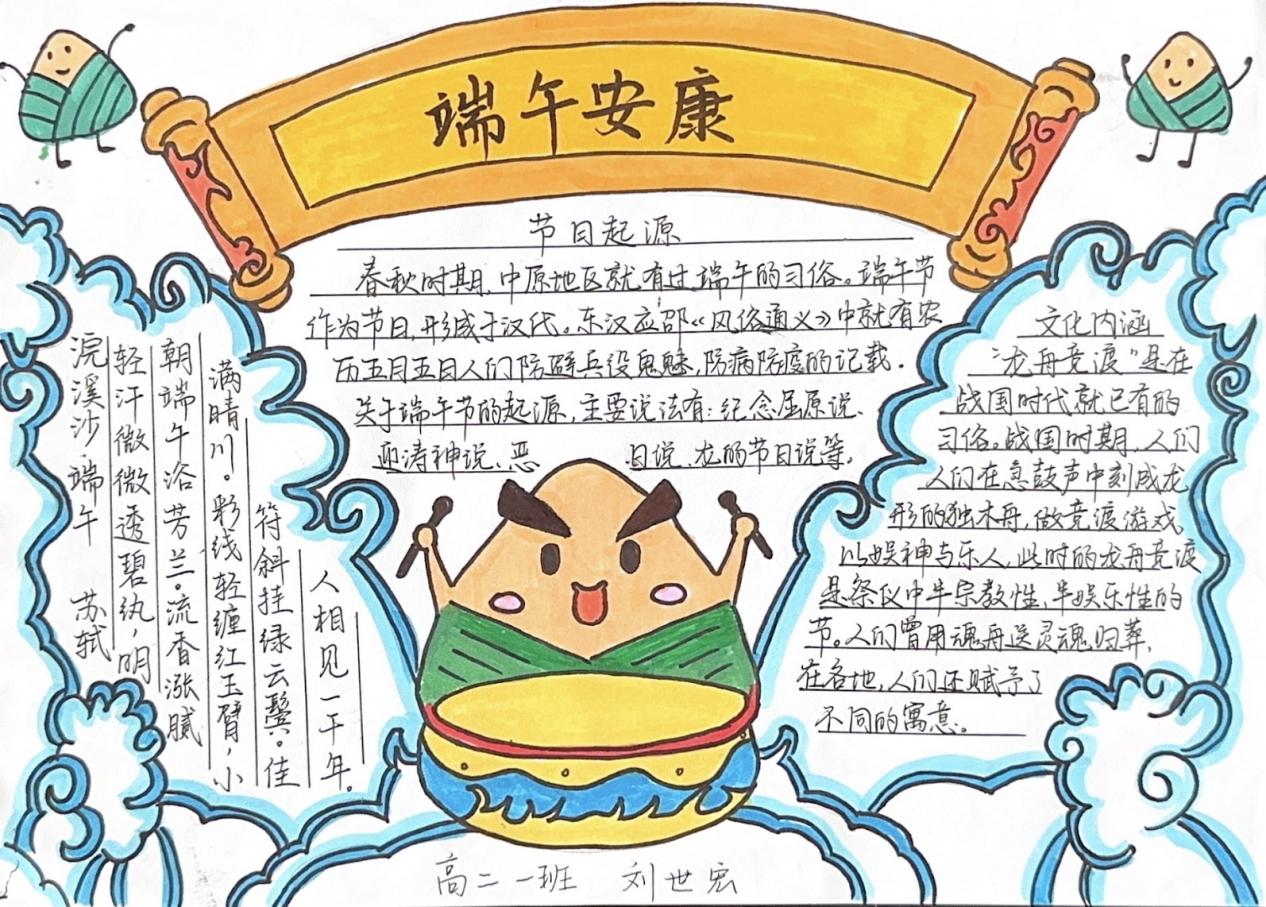 端午安康
节日起源
春秋时期,中原地区就有过端午的习俗。端午节
作为节日,形成于汉代。东汉应邵《风俗通义》中就有农
历五月五日人们防避兵役鬼魅,防病防疫的记载。
关于端午节的起源,主要说法有:纪念屈原说、
迎涛神说、恶 日说、龙的节日说等。
浣溪沙·端午 苏轼
轻汗微微透碧纨,明
朝端午浴芳兰。流香涨腻
满晴川。彩线轻缠红玉臂,小
符斜挂绿云鬓。佳
人相见一千年。
文化内涵
“龙舟竞渡”是在
战国时代就已有的
习俗。战国时期,人们
人们在急鼓声中刻成龙
形的独木舟,做竞渡游戏
以娱神与乐人,此时的龙舟竞渡
是祭仪中半宗教性,半娱乐性的
节。人们曾用魂舟送灵魂归葬,
在各地,人们还赋予了
不同的寓意。
高二一班 刘世宏